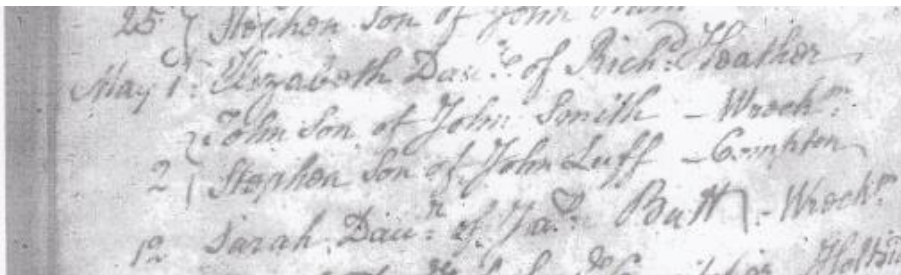 25 Stephen Son of John
May 1st Elizabeth Daur. of Richd. Heather
John Son of John Smith - Wrechm.
2 Stephen Son of John Luff - Compton
12 Sarah Daur. of Jas. Butt - Wrechm.